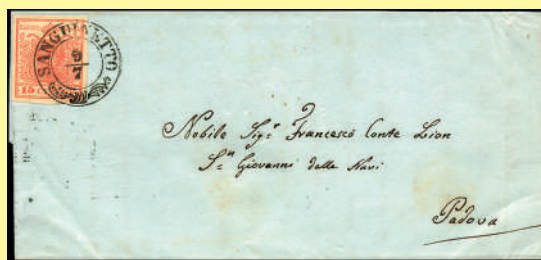 SANGUINETTO
9/7
15 C
Nobile Sig.r Francesco Conte Lion
S.n Giovanni dalle Navi
Padova